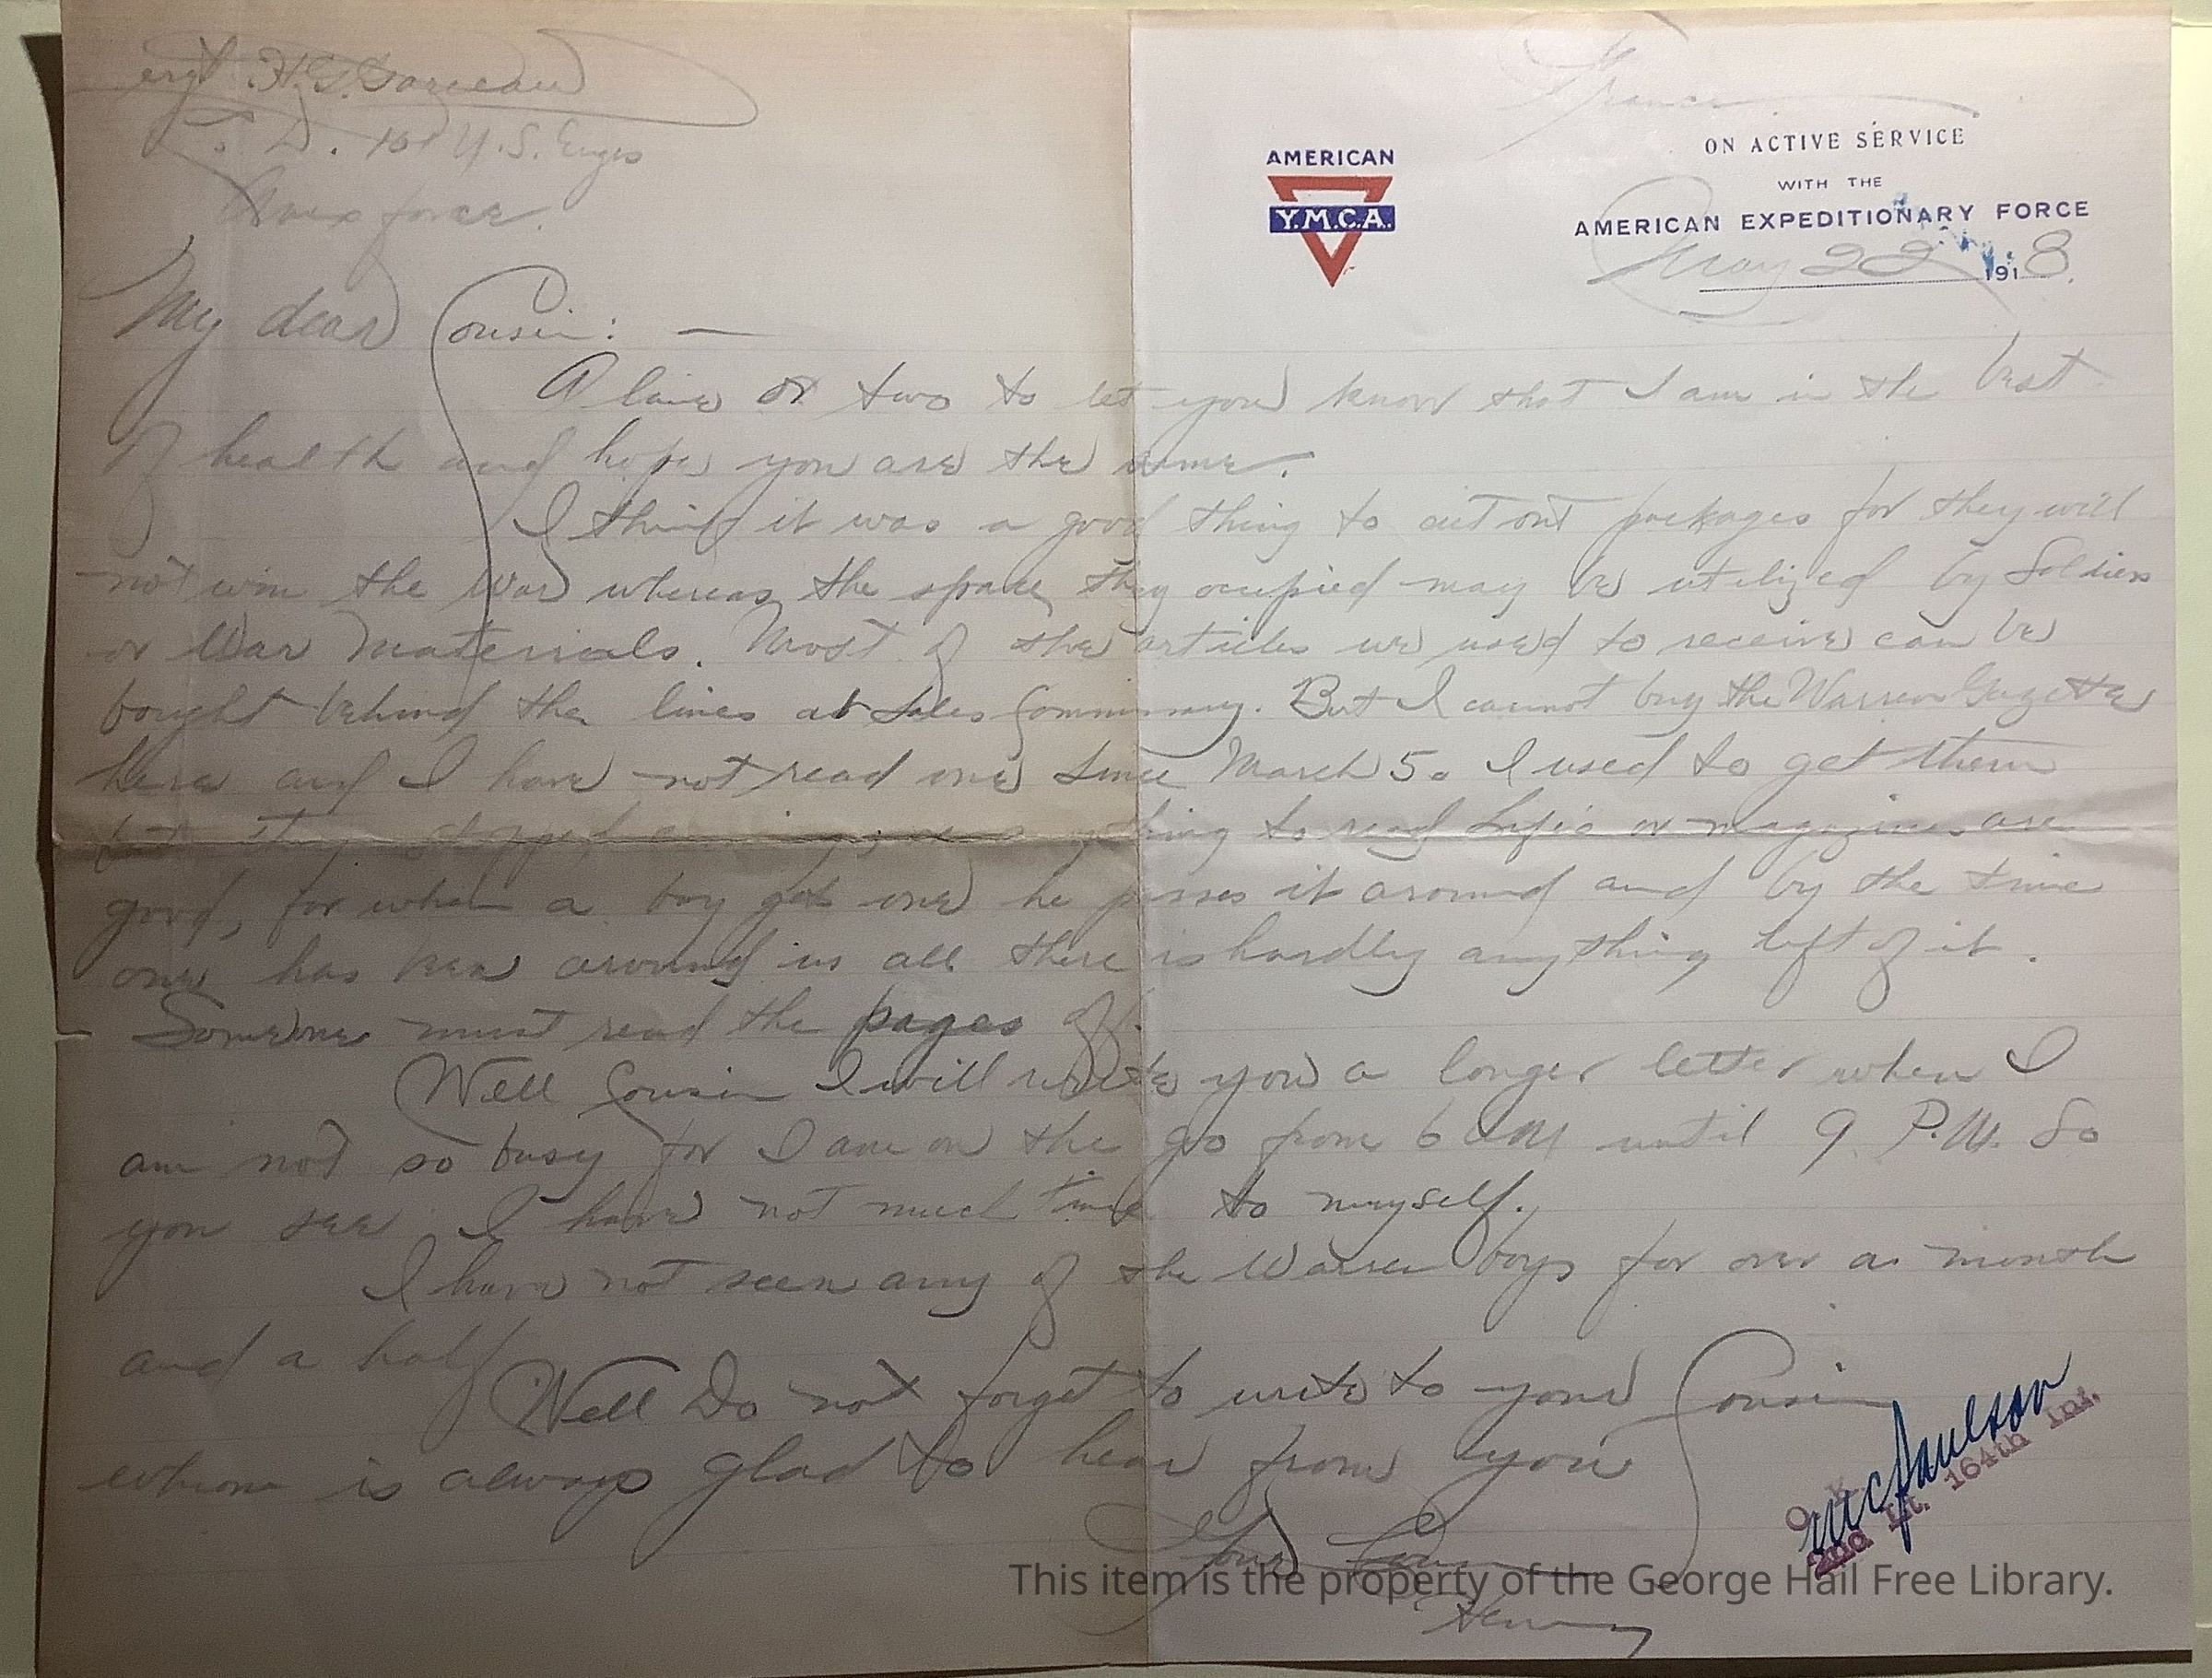 H.G. Gareau
France
D. 101 U.S. Engrs
force.
AMERICAN
Y.M.C.A.
ON ACTIVE SERVICE
WITH THE
AMERICAN EXPEDITIONARY FORCE
May 22 1918.
My dear Cousin: —
A line or two to let you know that I am in the best
of health and hope you are the same.
I think it was a good thing to cut out packages for they will
not win the war whereas the space they occupied may be utilized by
or War Materials. Most of the articles we used to receive can be
bought behind the lines at Sales Commissary. But I cannot buy the Warren Gazette
here and I have not read one since March 5. I used to get them
but they stopped to read or magazines are
good, for when a boy gets one he passes it around and by the time
one has been around us all there is hardly anything left of it.
Someone must read the pages off.
Well Cousin I will write you a longer letter when I
am not so busy for I am on the go from 6 AM until 9 P.M. So
you see I have not much time to myself.
I have not seen any of the Warren boys for over a month
and a half
Well Do not forget to write to your Cousin
whom is always glad to hear from you
Your Cousin
Henry
O.K.
2nd Lt. 164th Inf.
This item is the property of the George Hail Free Library.